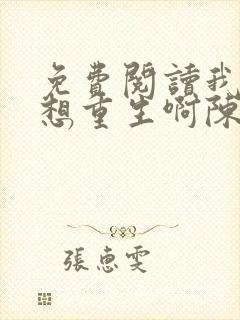 免費閱讀我
想重生啊陳
張惠雯